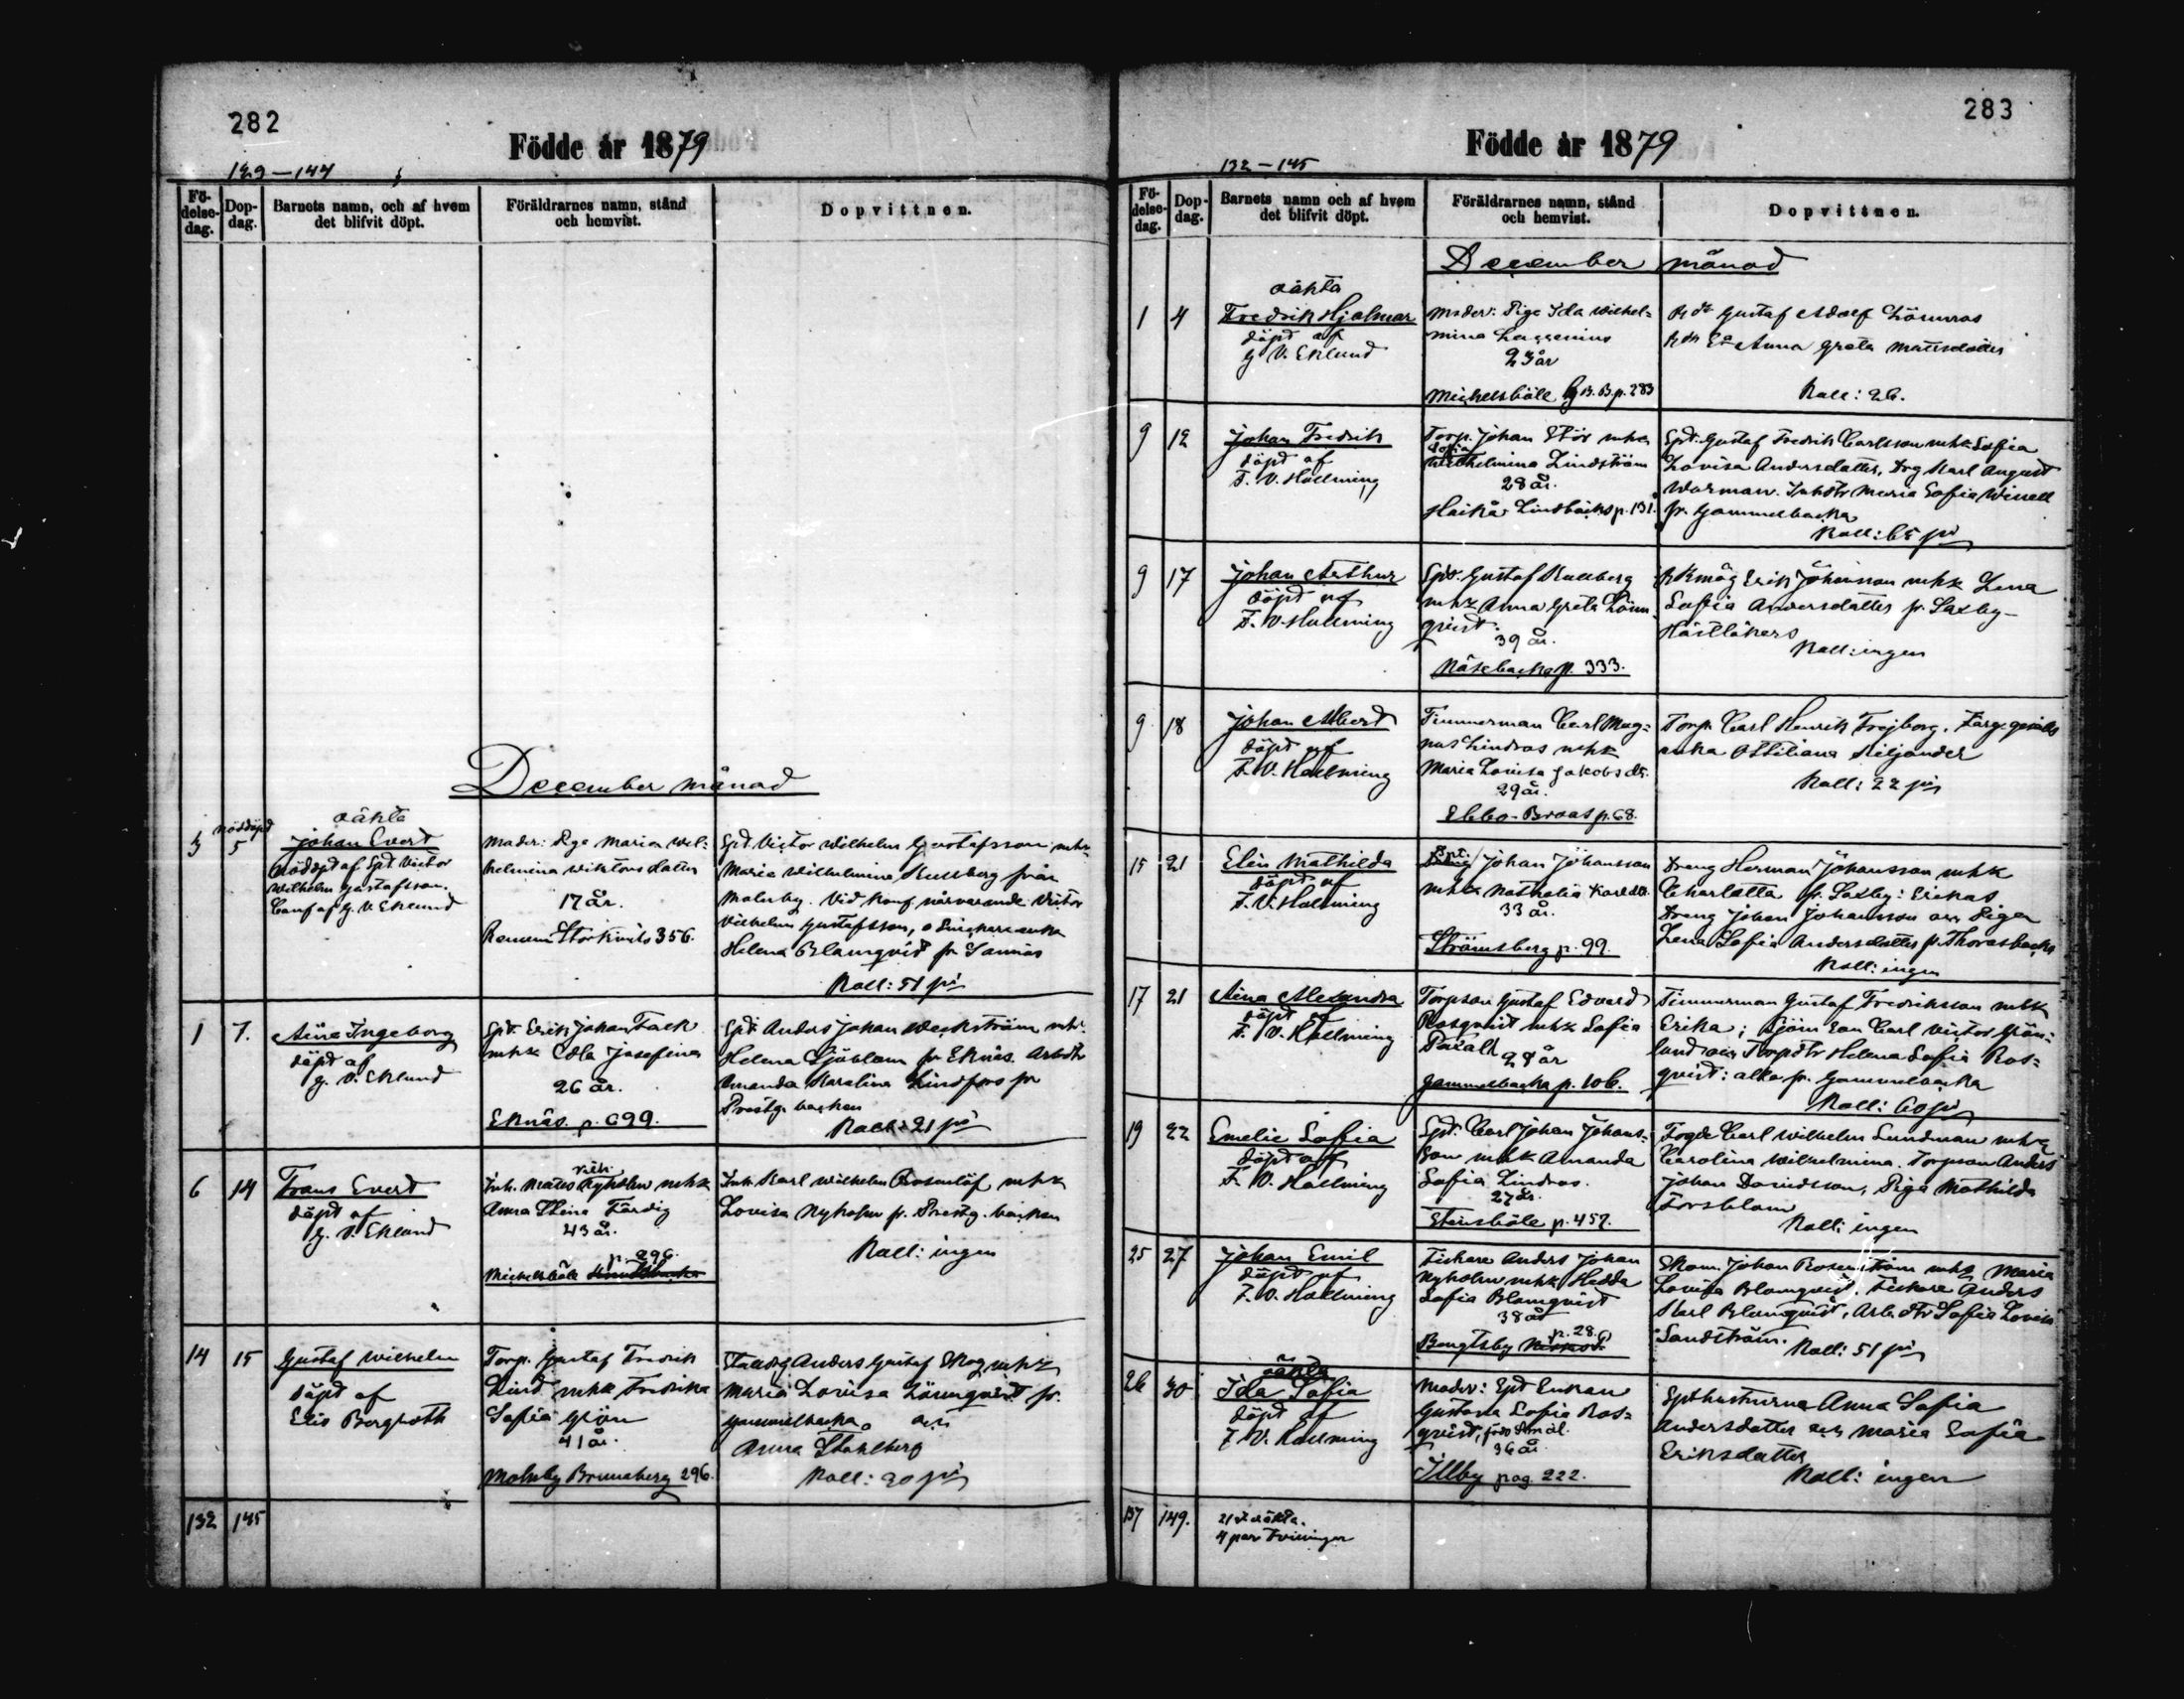 282
Födde år 1879
129-144
Fö-
delse-
dag.
Dop-
dag.
Barnets namn, och af hvem
det blifvit döpt.
Föräldrarnes namn, stånd
och hemvist.
Dopvittnen.
December månad
oäkta
3
nöddöpt
5
Johan Evert
nöddöpt af Spt Victor
Wilhelm Gustafsson.
Conf af G. V. Eklund
Moder: Piga Maria Wil-
helmina Wiktorsdatter
17 år.
356.
Spt. Victor Wilhelm Gustafsson mhk
Maria Wilhelmina Kullberg från
Malmby. Vid konf närvarande Victor
Vilhelm Gustafsson, o
Helena Blomqvist fr Sannäs
Kall: 51 pi
1
7.
Aina Ingeborg
döpt af
G. V. Eklund
Spt. Erik Johan Falk
mhk Josefina
26 år.
Eknäs. p. 699.
Spt Anders Johan Weckström mhk
Helena Sjöblom fr Eknäs. Arbdtr
Amanda Karolina Lindfors fr
Prestg. backen
Kall: 21 pi
6
14
Frans Evert
döpt af
G. V. Eklund
Inh. Mats Nyholm mhk
Anna Stina Färdig
43 år.
p. 296.
Michelsböle
Inh. Karl Wilhelm Rosenlöf mhk
Lovisa Nyholm fr. Prestg. backen
Kall: ingen
14
15
Gustaf Wilhelm
döpt af
Elis Bergroth
Torp. Gustaf Fredrik
Lind mhk Fredrika
Sofia Grön
41 år.
Malmby Brunaberg 296.
Anders Gustaf Skog mhk
Maria Lovisa Lönnqvist fr.
Gammelbacka och
Anna Stahlberg
Kall: 20 pi
132
145
283
Födde år 1879
132-145
Fö-
delse-
dag.
Dop-
dag.
Barnets namn och af hvem
det blifvit döpt.
Föräldrarnes namn, stånd
och hemvist.
Dopvittnen.
December månad
oäkta
1
4
Fredrik Hjalmar
döpt af
G. V. Eklund
Moder: Piga Ida Wilhel-
mina
23 år
Michelsböle B. B. p. 283
Gustaf Adolf Lönnros
Anna Greta Mattsdotter
Kall: 26.
9
12
Johan Fredrik
döpt af
F. V. Hallming
Torp. Johan Stör mhk
Sofia
Wilhelmina Lindström
28 år.
Haikå Lindbacks p. 131.
Spt. Gustaf Fredrik Carlsson mhk Sofia
Lovisa Andersdatter, Drg Karl August
Warman. Maria Sofia Winell
fr. Gammelbacka
Kall: 65 pi
9
17
Johan Arthur
döpt af
F. V. Hallming
Spt. Gustaf Kullberg
mhk Anna Greta Lönn-
qvist.
39 år.
Näsebacka p. 333.
Erik Johansson mhk Lena
Sofia Andersdatter fr. Saxby-
Kall: ingen
9
18
Johan Albert
döpt af
F. V. Hallming
Timmerman Carl Mag-
nus Lindros mhk
Maria Lovisa Jakobsdr.
29 år.
Ebbo-Broas p. 68.
Torp. Carl Henrik Frojborg.
enka Ottiliana Kiljander
Kall: 22 pi
15
21
Elin Mathilda
döpt af
F. V. Hallming
Spt.
Johan Johansson
mhk Nathalia Karlsdr.
33 år.
Strömsberg p. 99.
Dreng Herman Johansson mhk
Charlotta fr. Saxby: Erikas
Dreng Johan Johansson och Piga
Lena Sofia Andersdatter fr. Thorasbacka
Kall: ingen
17
21
Aina Alexandra
döpt af
F. V. Hallming
Torpson Gustaf Edvard
Rosqvist mhk Sofia
29 år
Gammelbacka p. 106.
Timmerman Gustaf Fredriksson mhk
Erika; Carl Victor Grön-
lund och Torpdtr Helena Sofia Ros-
qvist: alla fr. Gammelbacka
Kall: 60 pi
19
22
Emelie Sofia
döpt af
F. V. Hallming
Spt. Carl Johan Johans-
son mhk Amanda
Sofia Lindros.
27 år.
Stensböle p. 457.
Fogde Carl Wilhelm Sundman mhk
Carolina Wilhelmina. Torpson Anders
Johan Davidsson, Piga Mathilda
Forsblom
Kall: ingen
25
27
Johan Emil
döpt af
F. V. Hallming
Fiskare Anders Johan
Nyholm mhk Hedda
Sofia Blomqvist
38 år
p. 28.
Bengtsby
Skom. Johan Rosenström mhk Maria
Lovisa Blomqvist. Fiskare Anders
Karl Blomqvist, Arb. dtr Sofia Lovisa
Sandström. Kall: 51 pi
oäkta
26
30
Ida Sofia
döpt af
F. V. Hallming
Moder: Spt Enkan
Gustava Sofia Ros-
qvist, född Smål.
36 år.
Illby pag. 222.
Spthustrurna Anna Sofia
Andersdatter och Maria Sofia
Eriksdatter
Kall: ingen
137
149.
21 st oäkta.
4 par Tvillingar